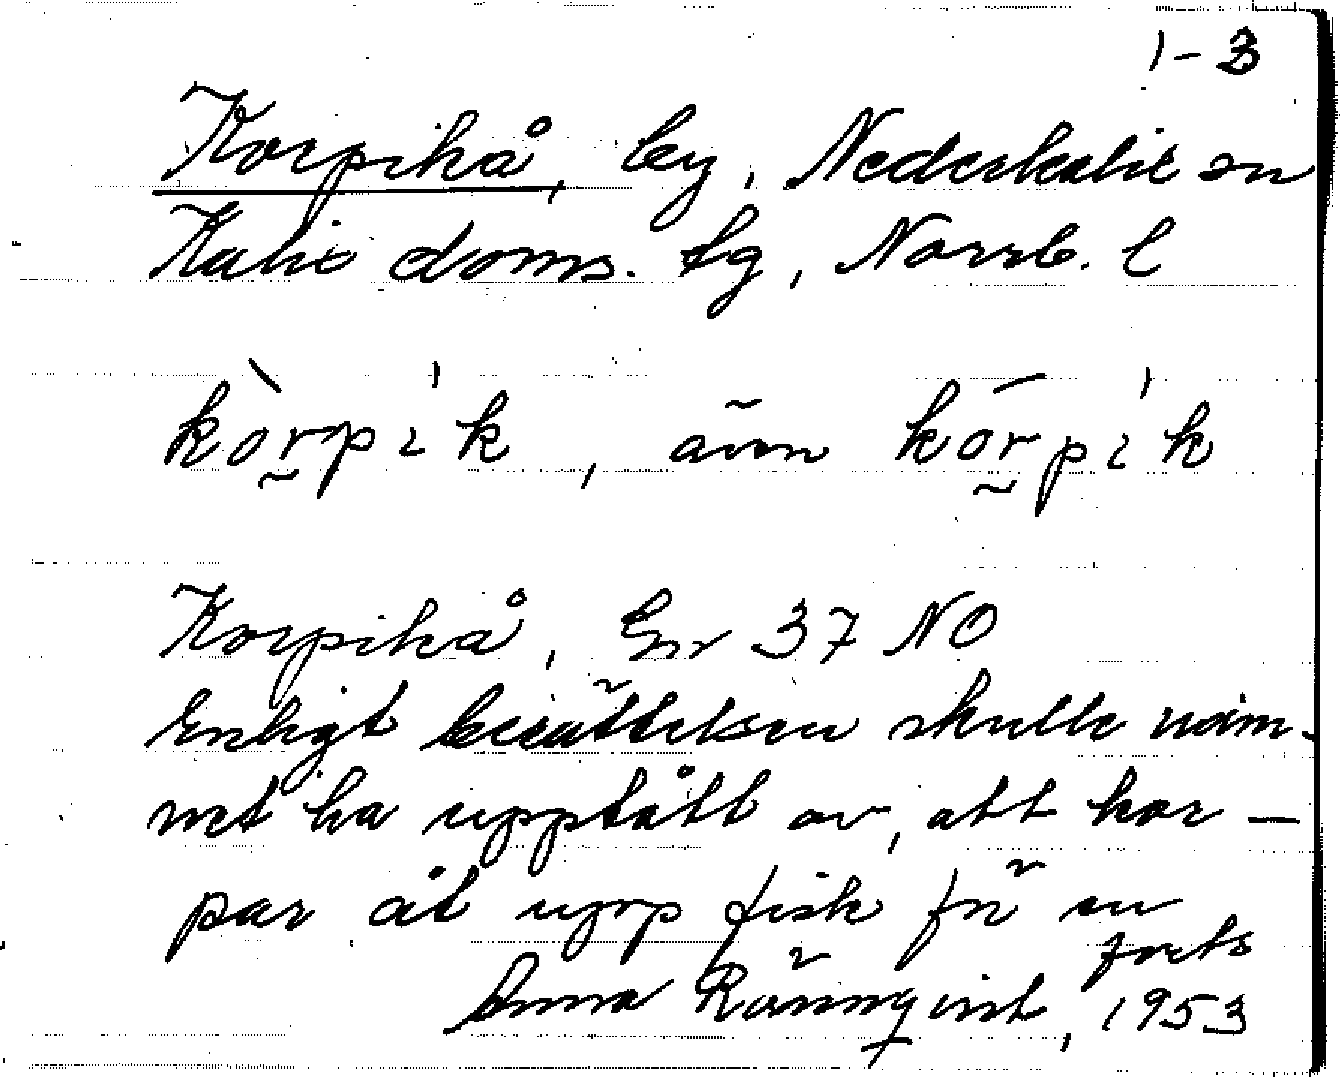 1-3
Korpikå, by, Nederkalix sn
Kalix doms. tg, Norrb. l
kòrpík, även kōrpík
Korpikå, Gnr 37 NO
Enligt berättelsen skulle nam-
net ha uppstått av, att kor-
par åt upp fisk för en
forts
Anna Rönnqvist, 1953